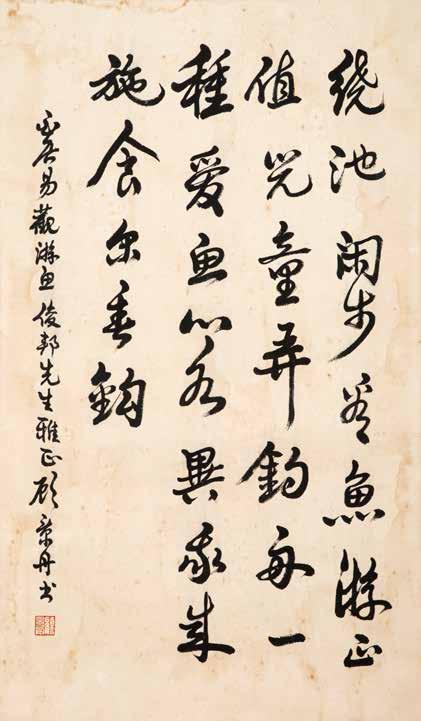 绕池闲步看魚游正
值兒童弄釣舟一
種愛魚心各異我來
施食尔垂鉤
白居易觀游魚 俊邦先生雅正 顾景舟书